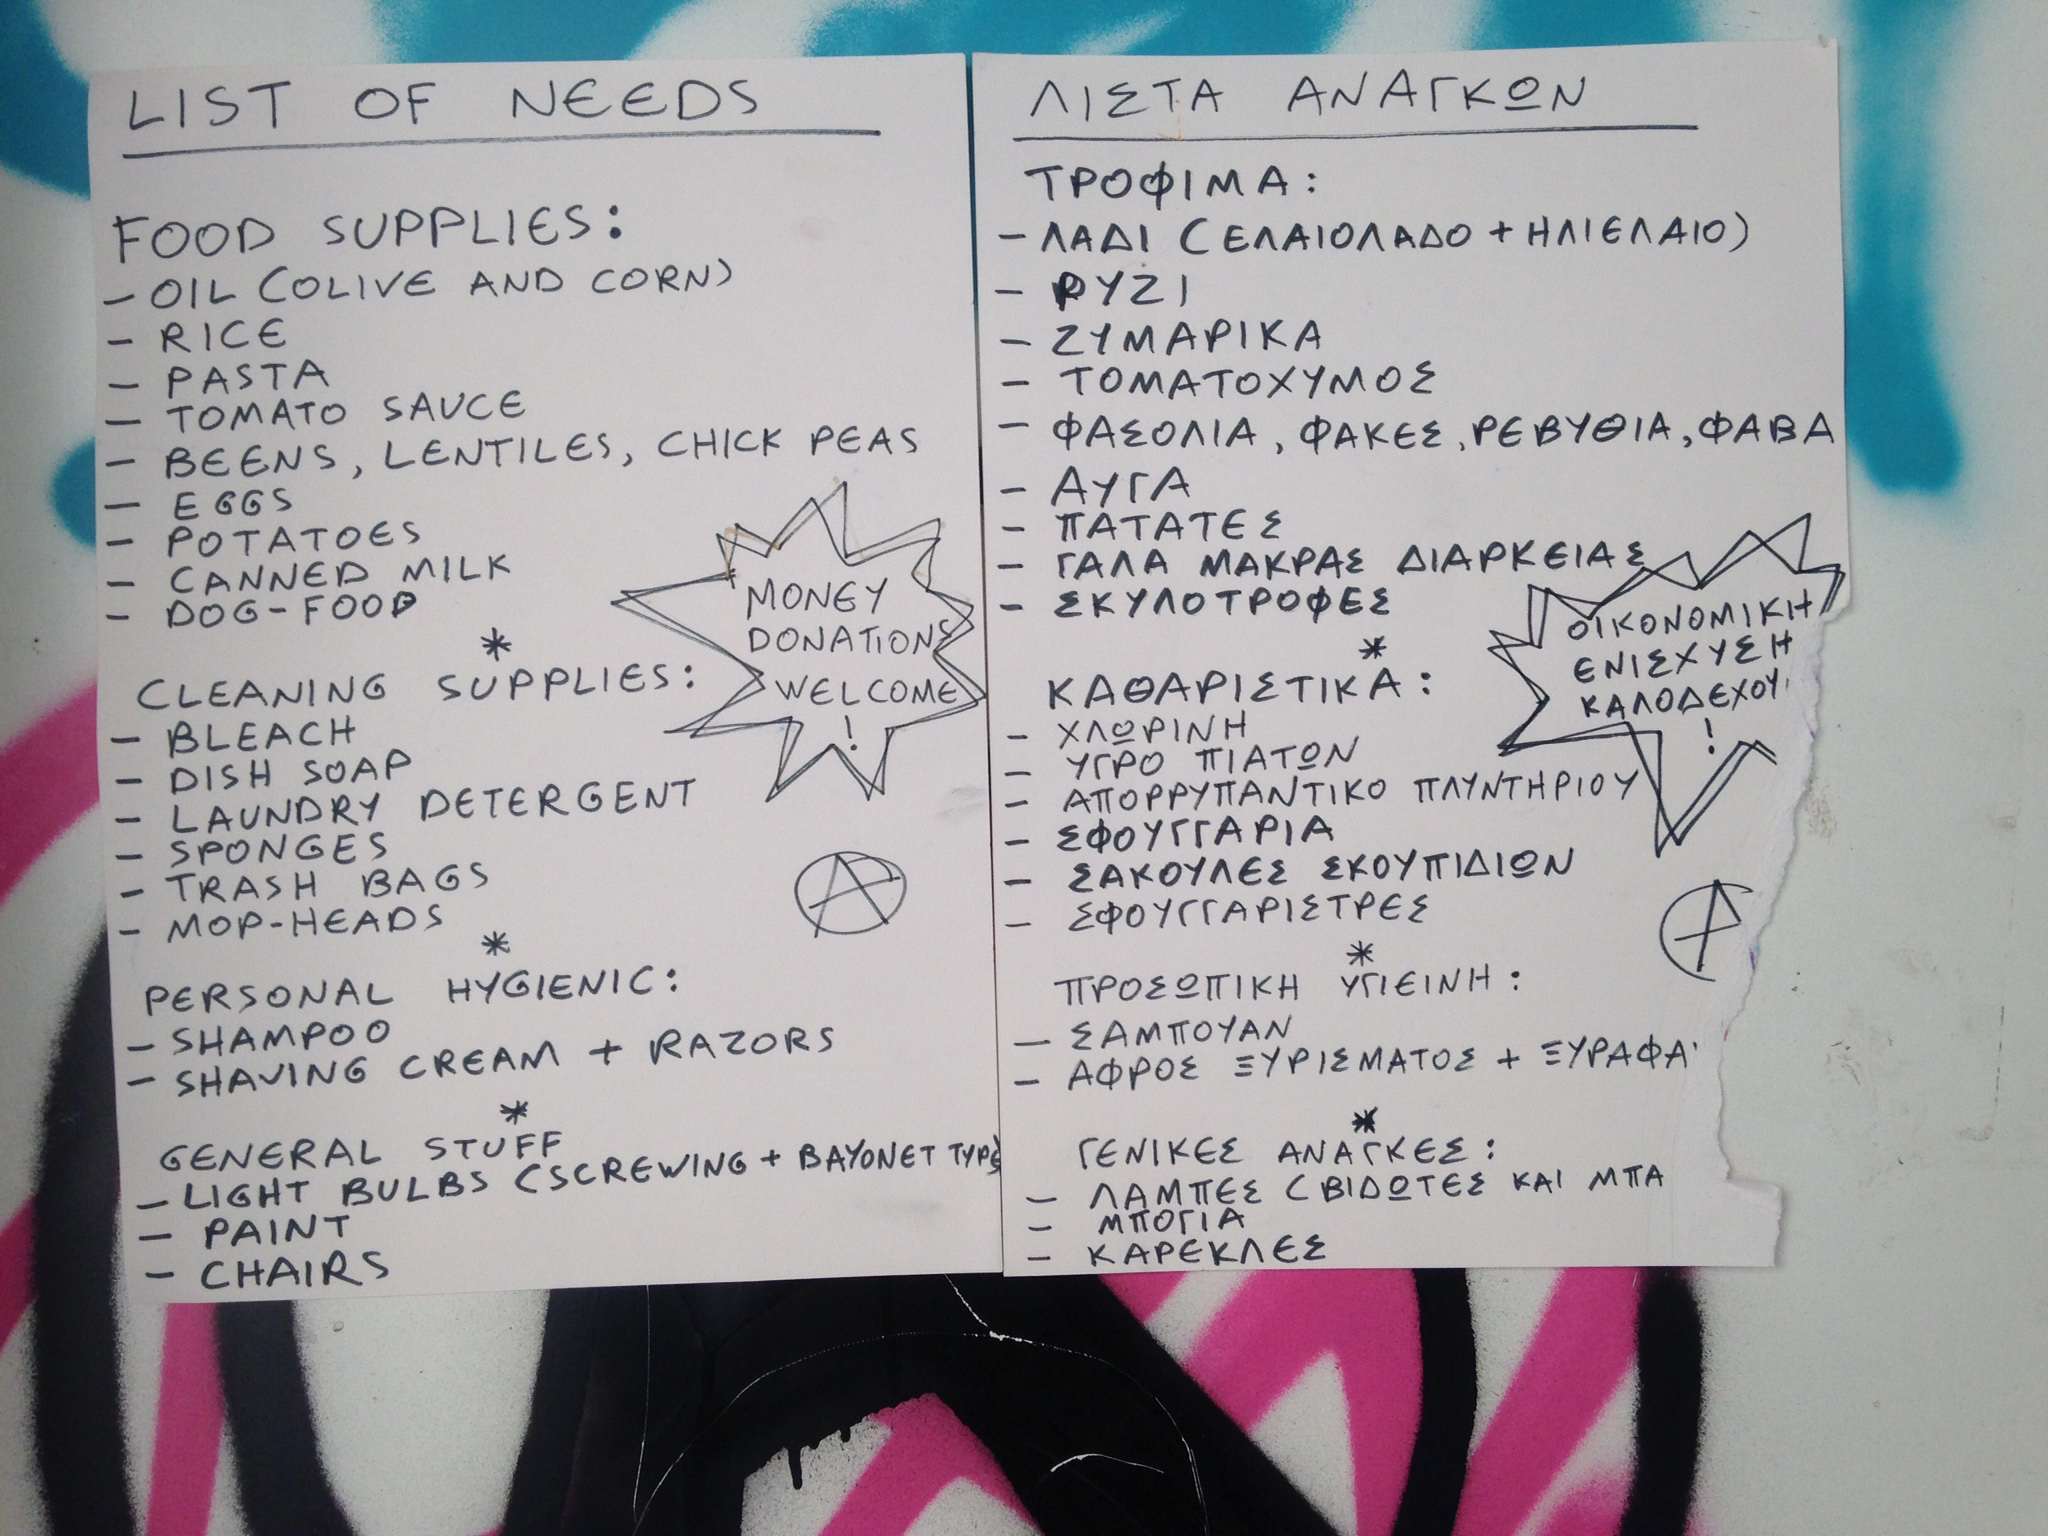 LIST OF NEEDS
FOOD SUPPLIES:
- OIL (OLIVE AND CORN)
- RICE
- PASTA
- TOMATO SAUCE
- BEENS, LENTILES, CHICK PEAS
- EGGS
- POTATOES
- CANNED MILK
- DOG-FOOD
*
CLEANING SUPPLIES:
- BLEACH
- DISH SOAP
- LAUNDRY DETERGENT
- SPONGES
- TRASH BAGS
- MOP-HEADS
*
PERSONAL HYGIENIC:
- SHAMPOO
- SHAVING CREAM + RAZORS
*
GENERAL STUFF
- LIGHT BULBS (SCREWING + BAYONET TYPE)
- PAINT
- CHAIRS
MONEY
DONATIONS
WELCOME
!
A
ΛΙΣΤΑ ΑΝΑΓΚΩΝ
ΤΡΟΦΙΜΑ:
- ΛΑΔΙ (ΕΛΑΙΟΛΑΔΟ + ΗΛΙΕΛΑΙΟ)
- ΡΥΖΙ
- ΖΥΜΑΡΙΚΑ
- ΤΟΜΑΤΟΧΥΜΟΣ
- ΦΑΣΟΛΙΑ, ΦΑΚΕΣ, ΡΕΒΥΘΙΑ, ΦΑΒΑ
- ΑΥΓΑ
- ΠΑΤΑΤΕΣ
- ΓΑΛΑ ΜΑΚΡΑΣ ΔΙΑΡΚΕΙΑΣ
- ΣΚΥΛΟΤΡΟΦΕΣ
*
ΚΑΘΑΡΙΣΤΙΚΑ:
- ΧΛΩΡΙΝΗ
- ΥΓΡΟ ΠΙΑΤΩΝ
- ΑΠΟΡΡΥΠΑΝΤΙΚΟ ΠΛΥΝΤΗΡΙΟΥ
- ΣΦΟΥΓΓΑΡΙΑ
- ΣΑΚΟΥΛΕΣ ΣΚΟΥΠΙΔΙΩΝ
- ΣΦΟΥΓΓΑΡΙΣΤΡΕΣ
*
ΠΡΟΣΩΠΙΚΗ ΥΓΙΕΙΝΗ:
- ΣΑΜΠΟΥΑΝ
- ΑΦΡΟΣ ΞΥΡΙΣΜΑΤΟΣ + ΞΥΡΑΦΑ
*
ΓΕΝΙΚΕΣ ΑΝΑΓΚΕΣ:
- ΛΑΜΠΕΣ (ΒΙΔΩΤΕΣ ΚΑΙ ΜΠΑ
- ΜΠΟΓΙΑ
- ΚΑΡΕΚΛΕΣ
ΟΙΚΟΝΟΜΙΚΗ
ΕΝΙΣΧΥΣΗ
ΚΑΛΟΔΕΧΟΥ
!
A